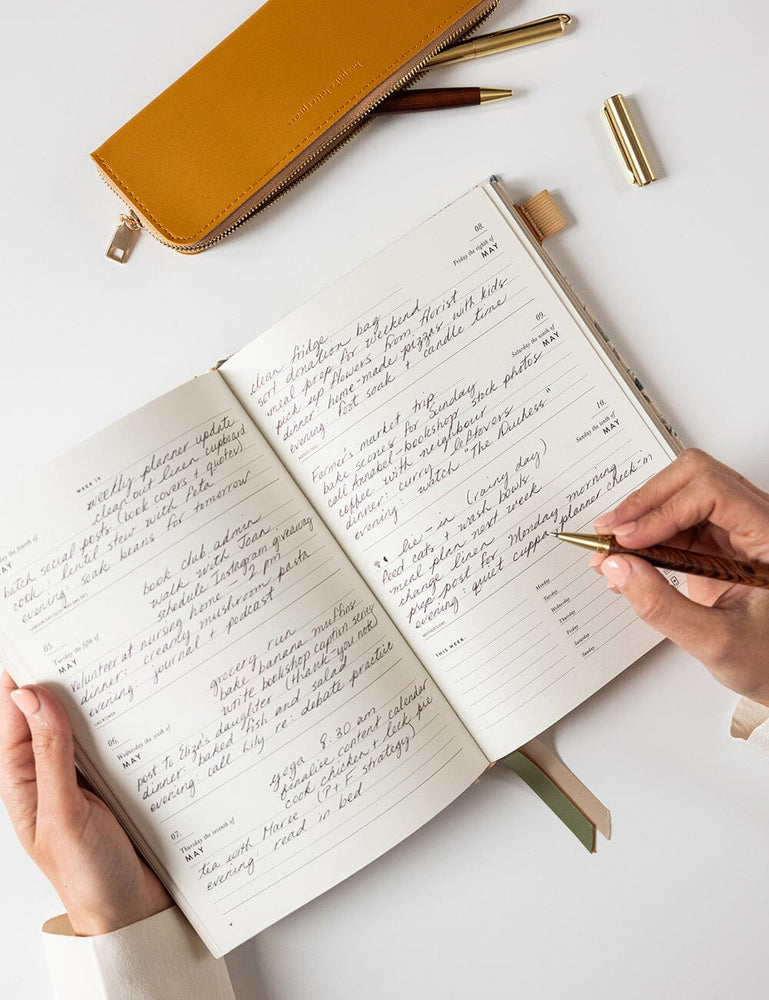 bespoke letterpress
WEEK 19
weekly planner update
clean out linen cupboard
batch social posts (book covers + quotes)
cook lentil stew with feta
evening: soak beans for tomorrow
Monday the fourth of
MAY
book club admin
walk with Joan
schedule Instagram giveaway
volunteer at nursing home 12 pm
dinner: creamy mushroom pasta
evening: journal + podcast
05.
Tuesday the fifth of
MAY
grocery run
bake banana muffins
write bookshop caption series
post to Eliza's daughter (thank you note)
dinner: baked fish and salad
evening: call Lily re: debate practice
06.
Wednesday the sixth of
MAY
yoga 8:30 am
finalise content calendar
cook chicken + leek pie
tea with Marie (P+F strategy)
evening: read in bed
07.
Thursday the seventh of
MAY
08.
Friday the eighth of
MAY
clean fridge
sort donation bag
meal prep for weekend
pick up flowers from florist
dinner: home-made pizzas with kids
evening: foot soak + candle time
09.
Saturday the ninth of
MAY
Farmer's market trip
bake scones for Sunday
call Annabel-bookshop stock photos
coffee with neighbour
dinner: curry leftovers
evening: watch "The Duchess"
10.
Sunday the tenth of
MAY
lie-in (rainy day)
feed cats + wash bowls
meal plan next week
change linen
prep post for Monday morning
evening: quiet cuppa + planner check-in
MOTHER'S DAY
THIS WEEK:
Monday
Tuesday
Wednesday
Thursday
Friday
Saturday
Sunday